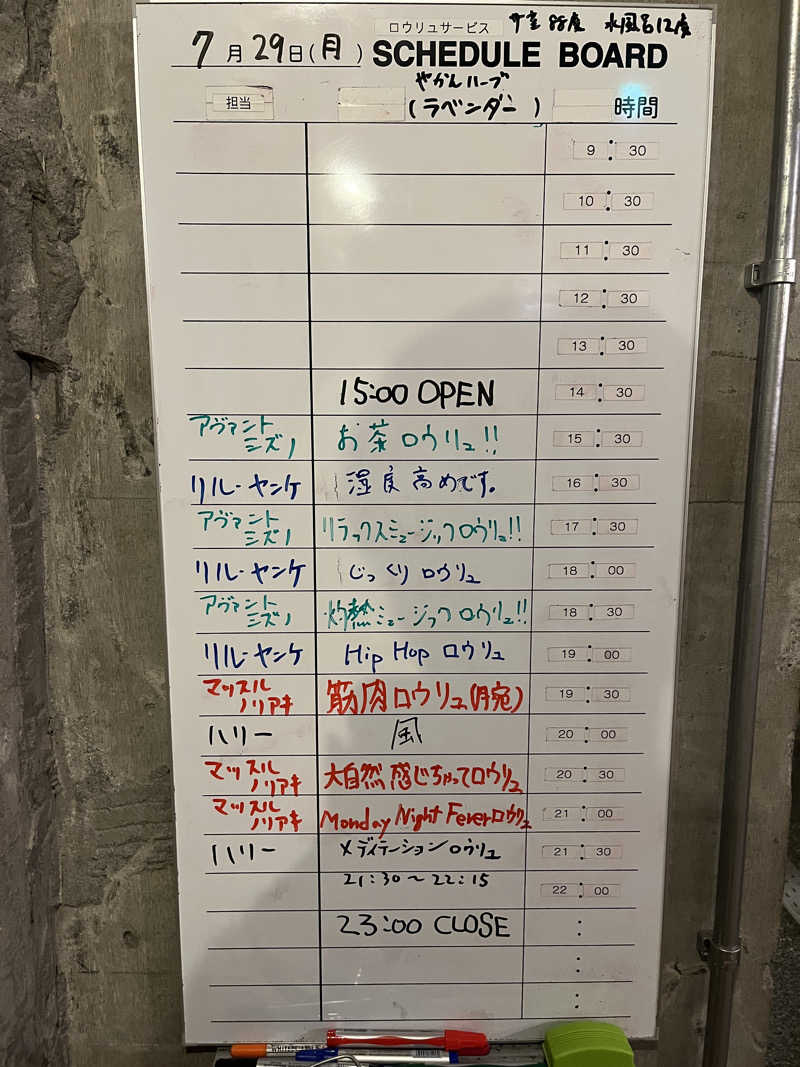 ロウリュサービス サ室 88度 水風呂12度
7月29日(月) SCHEDULE BOARD
やかんハーブ
担当 (ラベンダー) 時間
9:30
10:30
11:30
12:30
13:30
15:00 OPEN 14:30
アヴァント
ミズノ お茶ロウリュ!! 15:30
リル・ヤンケ 湿度高めです。 16:30
アヴァント
ミズノ リラックスミュージックロウリュ!! 17:30
リル・ヤンケ じっくりロウリュ 18:00
アヴァント
ミズノ 灼熱ミュージックロウリュ!! 18:30
リル・ヤンケ Hip Hop ロウリュ 19:00
マッスル
ノリアキ 筋肉ロウリュ(月宛) 19:30
ハリー 風 20:00
マッスル
ノリアキ 大自然感じちゃってロウリュ 20:30
マッスル
ノリアキ Monday Night Feverロウリュ 21:00
ハリー メディテーションロウリュ 21:30
21:30〜22:15 22:00
23:00 CLOSE :
:
: